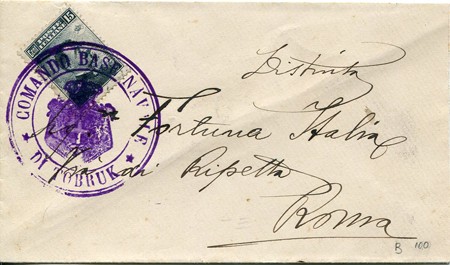 15
COMANDO BASE NAVALE
DI TOBRUK
Distinta
Fortuna Italia
di Ripetta
Roma
B 100